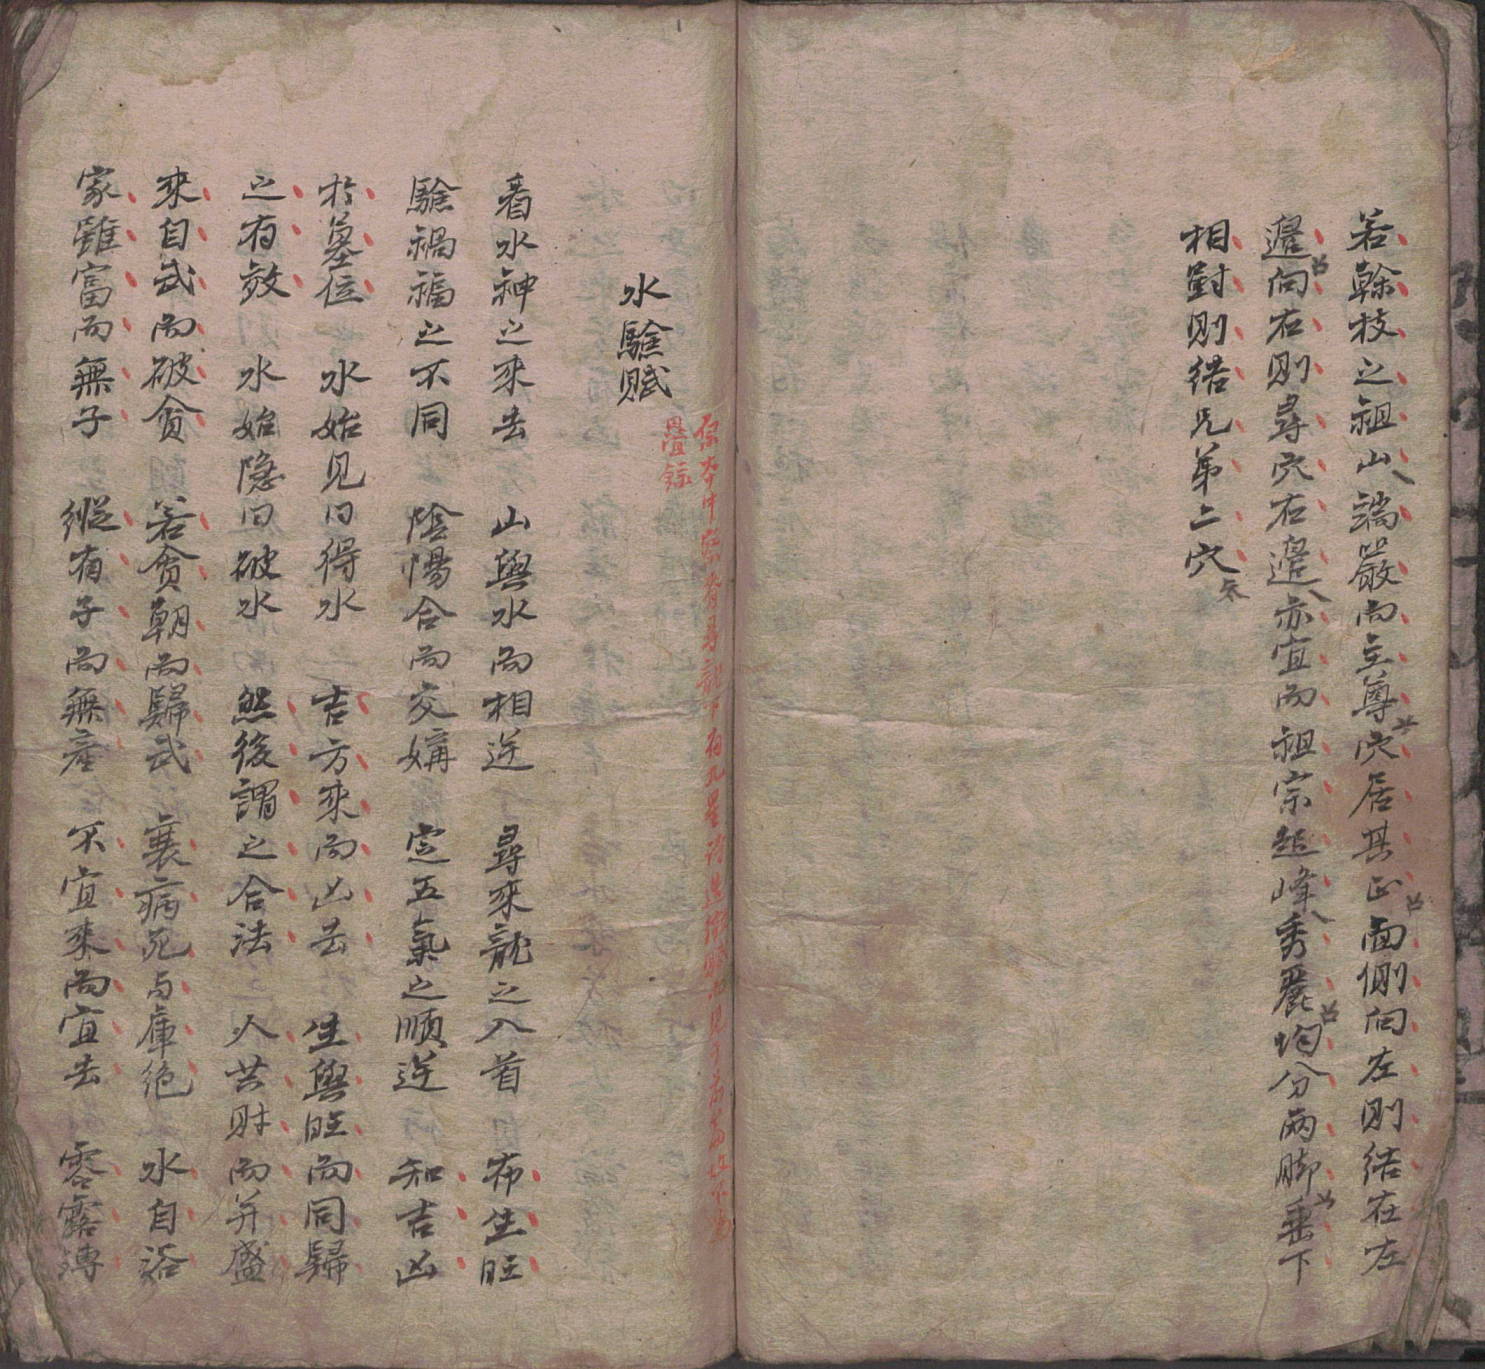 若幹枝之祖山端嚴而主尊穴居其正面側向左則結在左
邉向右則尋穴右邉亦宜而祖宗起峰秀麗均分兩脚垂下
相對則結兄弟二穴
水驗賦
看水神之來去 山與水而相逆 尋來龍之入首 布生旺
驗禍福之不同 陰陽合而交媾 定五氣之順逆 知吉凶
扵墓位 水始見曰得水 吉方來而凶去 生與旺而同歸
之有效 水始隐曰破水 然後謂之合法 人共財而并盛
來自武而破貪 若貪朝而歸武 衰病死与庫絶 水自浴
家雖富而無子 縱有子而無產 不宜來而宜去 零露